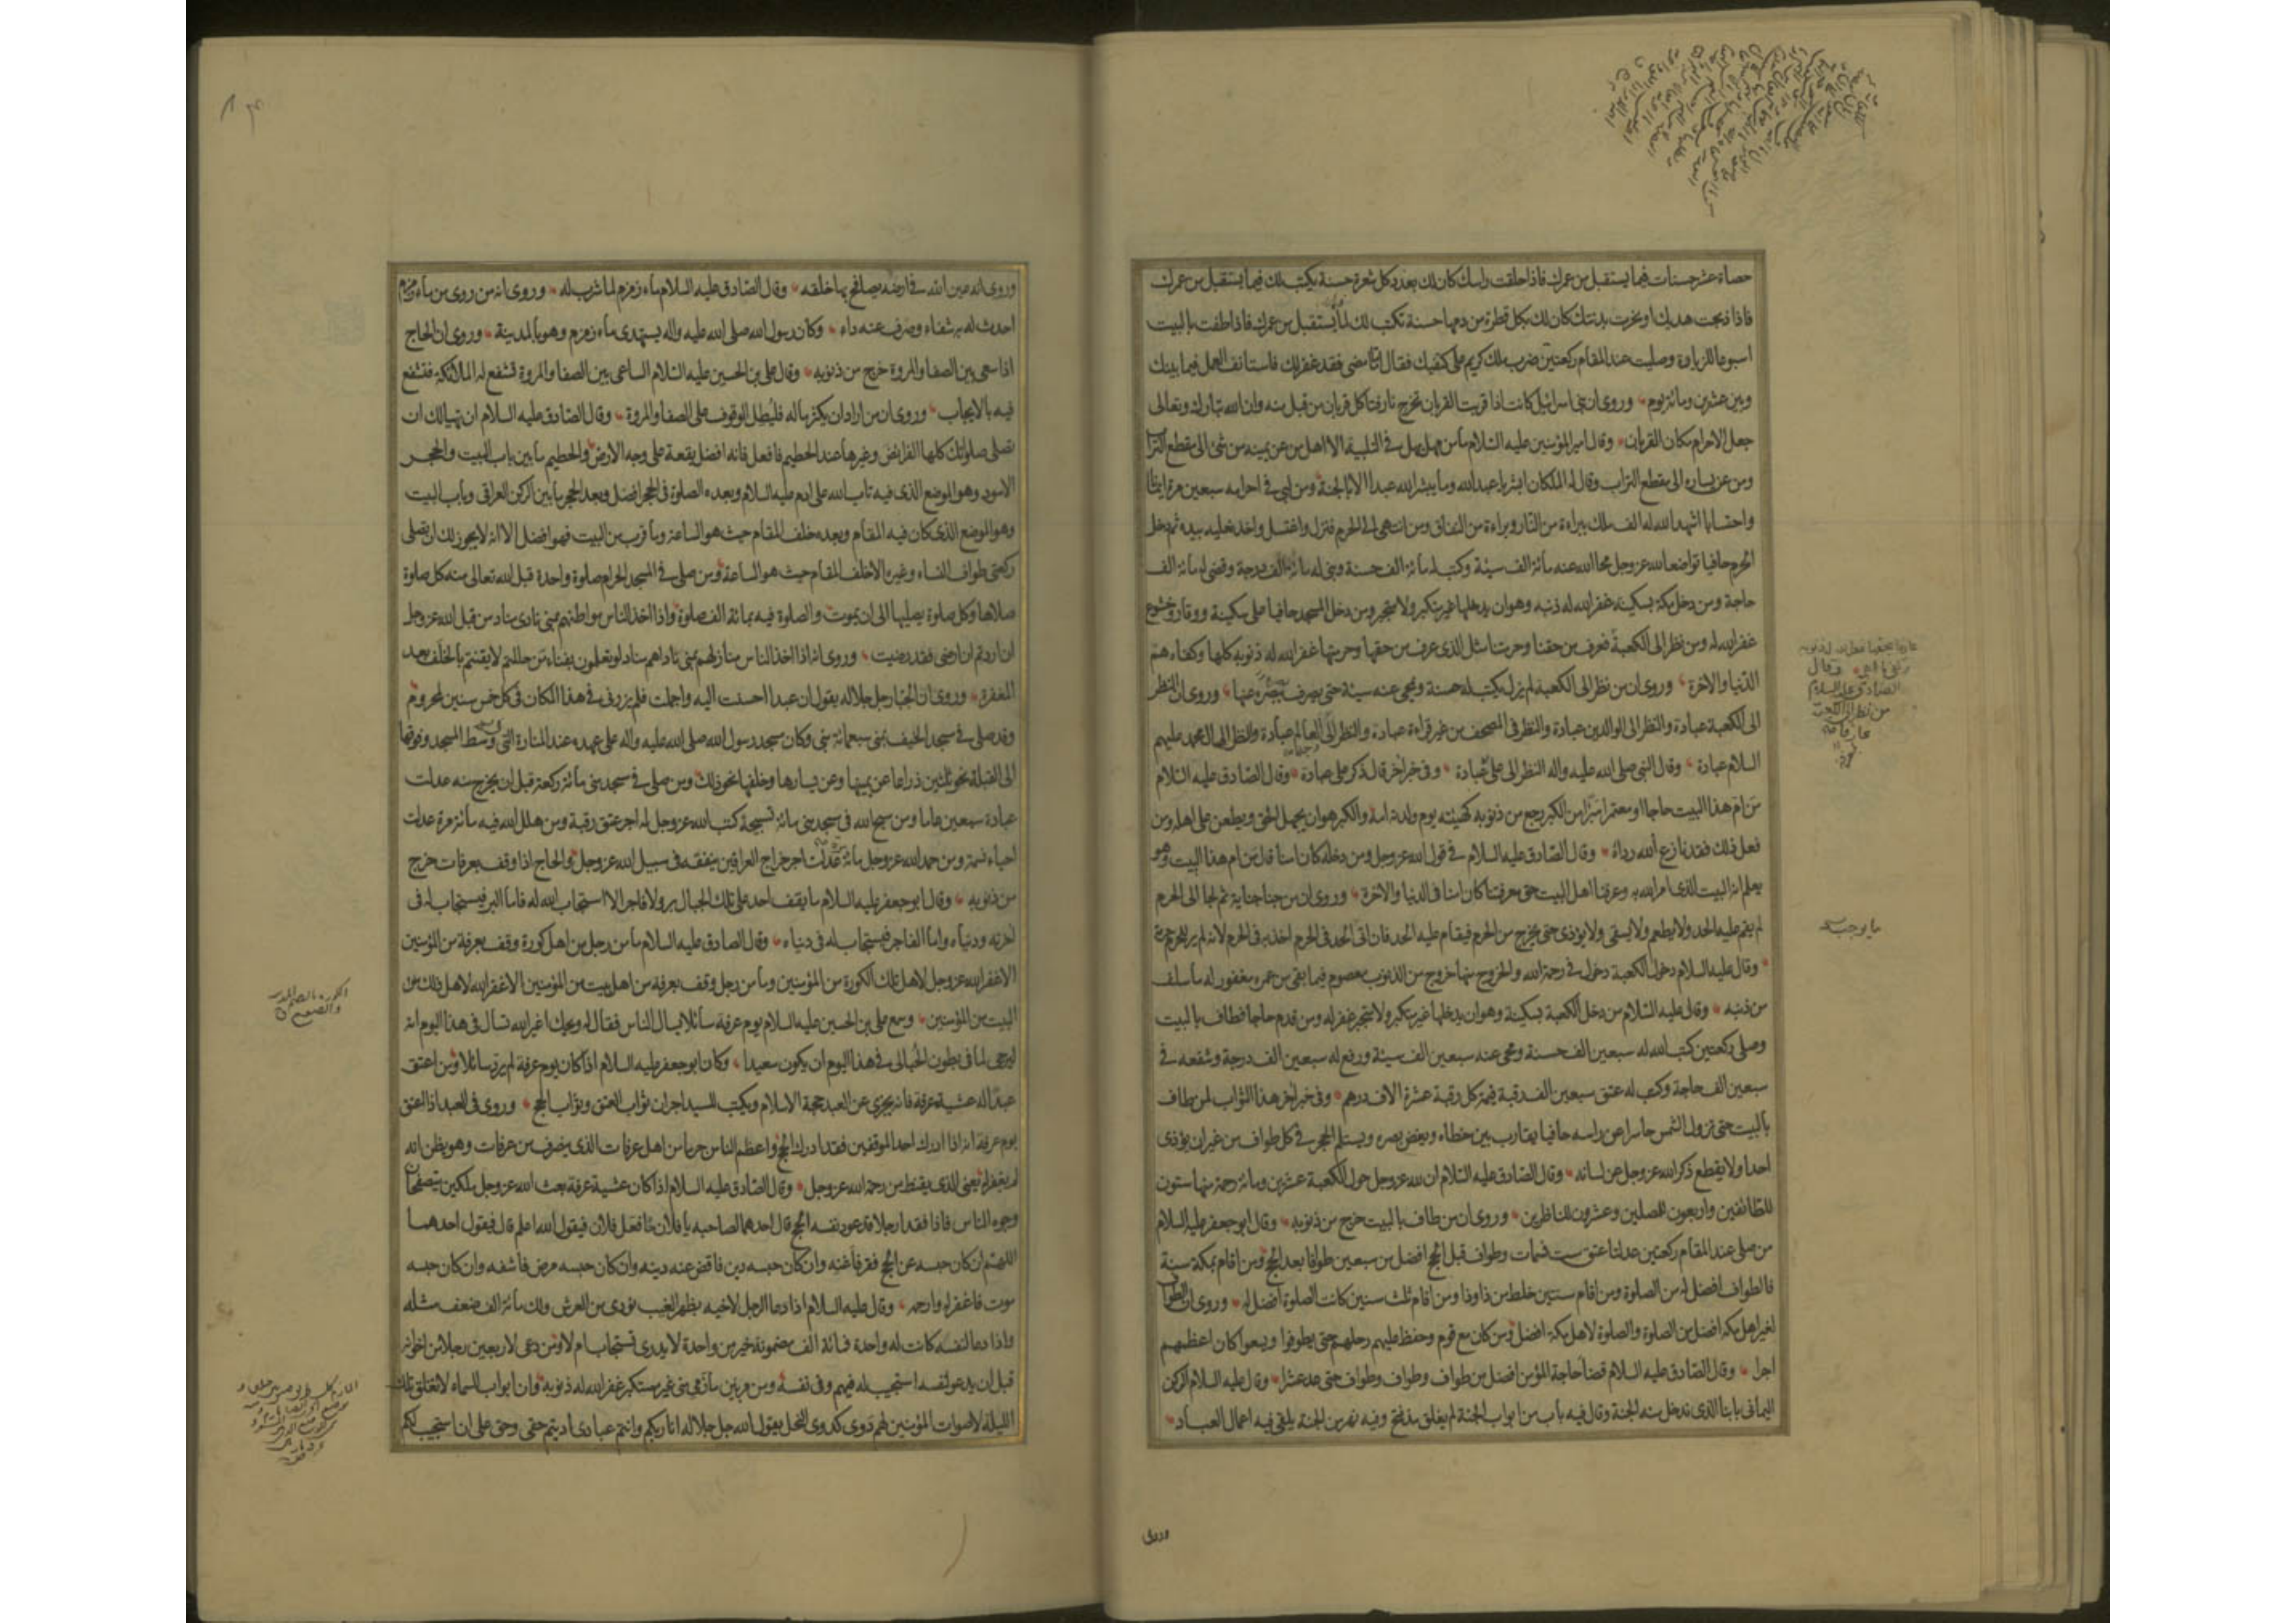 حصاة عشر حسنات فيما يستقبل من عمرك فاذا حلقت راسك كان لك بعدد كل شعرة حسنة يكتب لك فيما يستقبل من عمرك
فاذا ذبحت هديك او نحرت بدنتك كان لك بكل قطرة من دمها حسنة تكتب لك لما يستقبل من عمرك فاذا طفت بالبيت
اسبوعا للزيارة وصليت عند المقام ركعتين ضرب ملك كريم على كتفيك فقال اما ما مضى فقد غفر لك فاستانف العمل فيما بينك
وبين عشرين ومائة يوم وروى ان بنى اسرائيل كانت اذا قربت القربان تخرج نار فتاكل قربان من قبل منه وان الله تبارك وتعالى
جعل الاحرام مكان القربان وقال امير المؤمنين عليه السلام ما من مهل يهل فى التلبية الا اهل من عن يمينه من شئ الى مقطع التراب
ومن عن يساره الى مقطع التراب وقال له الملكان ابشر يا عبد الله وما يبشر الله عبدا الا بالجنة ومن لبى فى احرامه سبعين مرة ايمانا
واحتسابا اشهد الله له الف ملك ببراءة من النار وبراءة من النفاق ومن انتهى الى الحرم فنزل واغتسل واخذ نعليه بيده ثم دخل
الحرم حافيا تواضعا لله عز وجل محا الله عنه مائة الف سيئة وكتب له مائة الف حسنة وبنى له مائة الف درجة وقضى له مائة الف
حاجة ومن دخل مكة بسكينة غفر الله له ذنبه وهو ان يدخلها غير متكبر ولا متجبر ومن دخل المسجد حافيا على سكينة ووقار وخشوع
غفر الله له ومن نظر الى الكعبة فعرف من حقنا وحرمتنا مثل الذى عرف من حقها وحرمتها غفر الله له ذنوبه كلها وكفاه هم
الدنيا والاخرة وروى ان من نظر الى الكعبة لم يزل يكتب له حسنة ويمحى عنه سيئة حتى يصرف بصره عنها وروى ان النظر
الى الكعبة عبادة والنظر الى الوالدين عبادة والنظر فى المصحف من غير قراءة عبادة والنظر الى وجه العالم عبادة والنظر الى ال محمد عليهم
السلام عبادة وقال النبى صلى الله عليه واله النظر الى على عبادة وفى خبر اخر قال ذكر على عبادة وقال الصادق عليه السلام
من ام هذا البيت حاجا او معتمرا مبرا من الكبر رجع من ذنوبه كهيئته يوم ولدته امه والكبر هو ان يجهل الحق ويطعن على اهله ومن
فعل ذلك فقد نازع الله رداءه وقال الصادق عليه السلام فى قول الله عز وجل ومن دخله كان امنا قال من ام هذا البيت وهو
يعلم انه البيت الذى امر الله به وعرفنا اهل البيت حق معرفتنا كان امنا فى الدنيا والاخرة وروى ان من جنا جناية ثم لجا الى الحرم
لم يقم عليه الحد ولا يطعم ولا يسقى ولا يؤذى حتى يخرج من الحرم فيقام عليه الحد فان اتى الحد فى الحرم اخذ به فى الحرم لانه لم ير للحرم حرمة
وقال عليه السلام دخول الكعبة دخول فى رحمة الله والخروج منها خروج من الذنوب معصوم فيما بقى من عمره مغفور له ما سلف
من ذنبه وقال عليه السلام من دخل الكعبة بسكينة وهو ان يدخلها غير متكبر ولا متجبر غفر له ومن قدم حاجا فطاف بالبيت
وصلى ركعتين كتب الله له سبعين الف حسنة ومحى عنه سبعين الف سيئة ورفع له سبعين الف درجة وشفعه فى
سبعين الف حاجة وكتب له عتق سبعين الف رقبة قيمة كل رقبة عشرة الاف درهم وفى خبر اخر هذا الثواب لمن طاف
بالبيت حتى تزول الشمس حاسرا عن راسه حافيا يقارب بين خطاه ويغض بصره ويستلم الحجر فى كل طواف من غير ان يؤذى
احدا ولا يقطع ذكر الله عز وجل عن لسانه وقال الصادق عليه السلام ان لله عز وجل حول الكعبة عشرين ومائة رحمة منها ستون
للطائفين واربعون للمصلين وعشرون للناظرين وروى ان من طاف بالبيت خرج من ذنوبه وقال ابو جعفر عليه السلام
من صلى عند المقام ركعتين عدلتا عتق ست نسمات وطواف قبل الحج افضل من سبعين طوافا بعد الحج ومن اقام بمكة سنة
فالطواف افضل له من الصلوة ومن اقام سنتين خلط من ذا وذا ومن اقام ثلث سنين كانت الصلوة افضل له وروى ان الطواف
لغير اهل مكة افضل من الصلوة والصلوة لاهل مكة افضل ومن كان مع قوم وحفظ عليهم رحلهم حتى يطوفوا ويسعوا كان اعظمهم
اجرا وقال الصادق عليه السلام قضا حاجة المؤمن افضل من طواف وطواف وطواف حتى عد عشرا وقال عليه السلام الركن
اليمانى بابنا الذى ندخل منه الجنة وقال فيه باب من ابواب الجنة لم يغلق منذ فتح وفيه نهر من الجنة يلقى فيه اعمال العباد
وقال
الصادق عليه السلام
من نظر الى الكعبة
وروى
وروى انه يمين الله فى ارضه يصافح بها خلقه وقال الصادق عليه السلام ماء زمزم لما شرب له وروى انه من روى من ماء زمزم
احدث له به شفاء وصرف عنه داء وكان رسول الله صلى الله عليه واله يستهدى ماء زمزم وهو بالمدينة وروى ان الحاج
اذا سعى بين الصفا والمروة خرج من ذنوبه وقال على بن الحسين عليه السلام الساعى بين الصفا والمروة تشفع له الملائكة فتشفع
فيه بالايجاب وروى ان من اراد ان يكثر ماله فليطل الوقوف على الصفا والمروة وقال الصادق عليه السلام ان تهيا لك ان
تصلى صلواتك كلها الفرايض وغيرها عند الحطيم فافعل فانه افضل بقعة على وجه الارض والحطيم ما بين باب البيت والحجر
الاسود وهو الموضع الذى فيه تاب الله على ادم عليه السلام وبعده الصلوة فى الحجر افضل وبعد الحجر ما بين الركن العراقى وباب البيت
وهو الموضع الذى كان فيه المقام وبعده خلف المقام حيث هو الساعة وما قرب من البيت فهو افضل الا انه لا يجوز لك ان تصلى
ركعتى طواف النساء وغيره الا خلف المقام حيث هو الساعة ومن صلى فى المسجد الحرام صلوة واحدة قبل الله تعالى منه كل صلوة
صلاها وكل صلوة يصليها الى ان يموت والصلوة فيه بمائة الف صلوة واذا اخذ الناس مواطنهم بمنى نادى مناد من قبل الله عز وجل
ان اردتم ان ارضى فقد رضيت وروى انه اذا اخذ الناس منازلهم بمنى ناداهم مناد لو تعلمون بفناء من حللتم لايقنتم بالخلف بعد
المغفرة وروى ان الجبار جل جلاله يقول ان عبدا احسنت اليه واجملت فلم يزرنى فى هذا المكان فى كل خمس سنين لمحروم
وقد صلى فى مسجد الخيف بمنى سبعمائة نبى وكان مسجد رسول الله صلى الله عليه واله على عهده عند المنارة التى فى وسط المسجد وفوقها
الى القبلة نحو ثلثين ذراعا عن يمينها وعن يسارها وخلفها نحو ذلك ومن صلى فى مسجد منى مائة ركعة قبل ان يخرج منه عدلت
عبادة سبعين عاما ومن سبح الله فى مسجد منى مائة تسبيحة كتب الله عز وجل له اجر عتق رقبة ومن هلل الله فيه مائة مرة عدلت
احياء نسمة ومن حمد الله عز وجل مائة مرة عدلت اجر خراج العراقين ينفقه فى سبيل الله عز وجل والحاج اذا وقف بعرفات خرج
من ذنوبه وقال ابو جعفر عليه السلام ما يقف احد على تلك الجبال بر ولا فاجر الا استجاب الله له فاما البر فيستجاب له فى
اخرته ودنياه واما الفاجر فيستجاب له فى دنياه وقال الصادق عليه السلام ما من رجل من اهل كورة وقف بعرفة من المؤمنين
الا غفر الله عز وجل لاهل تلك الكورة من المؤمنين وما من رجل وقف بعرفة من اهل بيت من المؤمنين الا غفر الله لاهل ذلك
البيت من المؤمنين وسمع على بن الحسين عليه السلام يوم عرفة سائلا يسال الناس فقال له ويحك اغير الله تسال فى هذا اليوم انه
ليرجى لما فى بطون الحبالى فى هذا اليوم ان يكون سعيدا وكان ابو جعفر عليه السلام اذا كان يوم عرفة لم يرد سائلا ومن اعتق
عبدا له عشية عرفة فانه يجزى عن العبد حجة الاسلام ويكتب للسيد اجران ثواب العتق وثواب الحج وروى فى العبد اذا اعتق
يوم عرفة انه اذا ادرك احد الموقفين فقد ادرك الحج واعظم الناس جرما من اهل عرفات الذى ينصرف من عرفات وهو يظن انه
لم يغفر له يعنى الذى يقنط من رحمة الله عز وجل وقال الصادق عليه السلام اذا كان عشية عرفة بعث الله عز وجل ملكين يتصفحان
وجوه الناس فاذا فقدا رجلا قد عود نفسه الحج قال احدهما لصاحبه يا فلان ما فعل فلان فيقول الله اعلم قال فيقول احدهما
اللهم ان كان حبسه عن الحج فقر فاغنه وان كان حبسه دين فاقض عنه دينه وان كان حبسه مرض فاشفه وان كان حبسه
موت فاغفر له وارحمه وقال عليه السلام اذا دعا الرجل لاخيه بظهر الغيب نودى من العرش ولك مائة الف ضعف مثله
واذا دعا لنفسه كانت له واحدة فمائة الف مضمونة خير من واحدة لا يدرى تستجاب ام لا ومن دعى لاربعين رجلا من اخوانه
قبل ان يدعو لنفسه استجيب له فيهم وفى نفسه ومن مر بين مازمى منى غير مستكبر غفر الله له ذنوبه وان ابواب السماء لا تغلق تلك
الليلة لاصوات المؤمنين لهم دوى كدوى النحل يقول الله جل جلاله انا ربكم وانتم عبادى اديتم حقى وحق على ان استجيب لكم